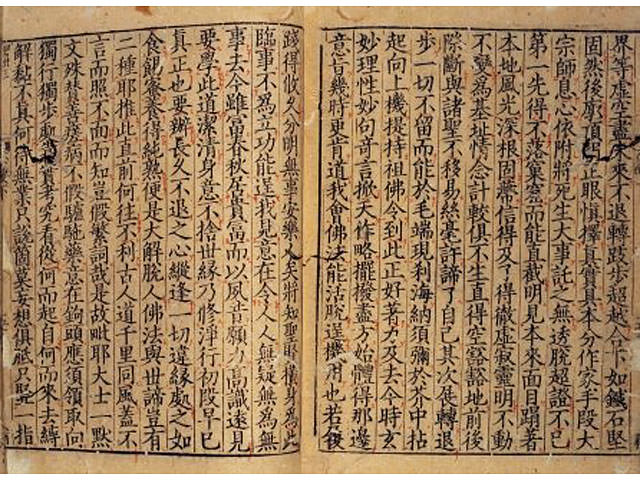 界等虛空盡未來才退轉跂步超越人下如鐵石堅
固然後廓頂正眼慎擇真實具本分作家手段大
宗師息心依附將死生大事託之無透脫超證不已
第一先得不落窠窟而能直截明見本來面目蹋著
本地風光深根固蔕信得及了得徹虛寂靈明不動
不變為基址情念計較俱不生直得空豁豁地前後
際斷與諸聖不移易絲毫許諦了自己其次展轉退
步一切不留而能於毛端現刹海納須彌於芥中拈
起向上機提持祖佛令到此正好著力及去今時玄
妙理性妙句奇言掀天作略擺撥盡方始體得那邊
意旨幾時更肯道我會佛法能活脫逞機用也若復
踐得攸久分明無事安樂人矣將知聖賢橫身為此
臨事不為立功能逞我見意在令人人無疑無為無
事去今雖富春秋居貴富而以夙昔願力高識遠見
要學此道潔清身意不捨世緣乃修淨行初段早已
真正也要辦長久不退之心縱逢一切違緣處之如
食飽養得純熟便是大解脫人佛法與世諦豈有
二種耶推此直前何往不利古人道千里同風蓋不
言而照不面而知豈假繁詞哉是故毗耶大士一默
文殊贊善痊病不假驢駞藥意在鉤頭應須領取向
獨行獨步實考究看從何而起自何而來去縛
解黏不真何待無業只說箇莫妄想俱胝只豎一指